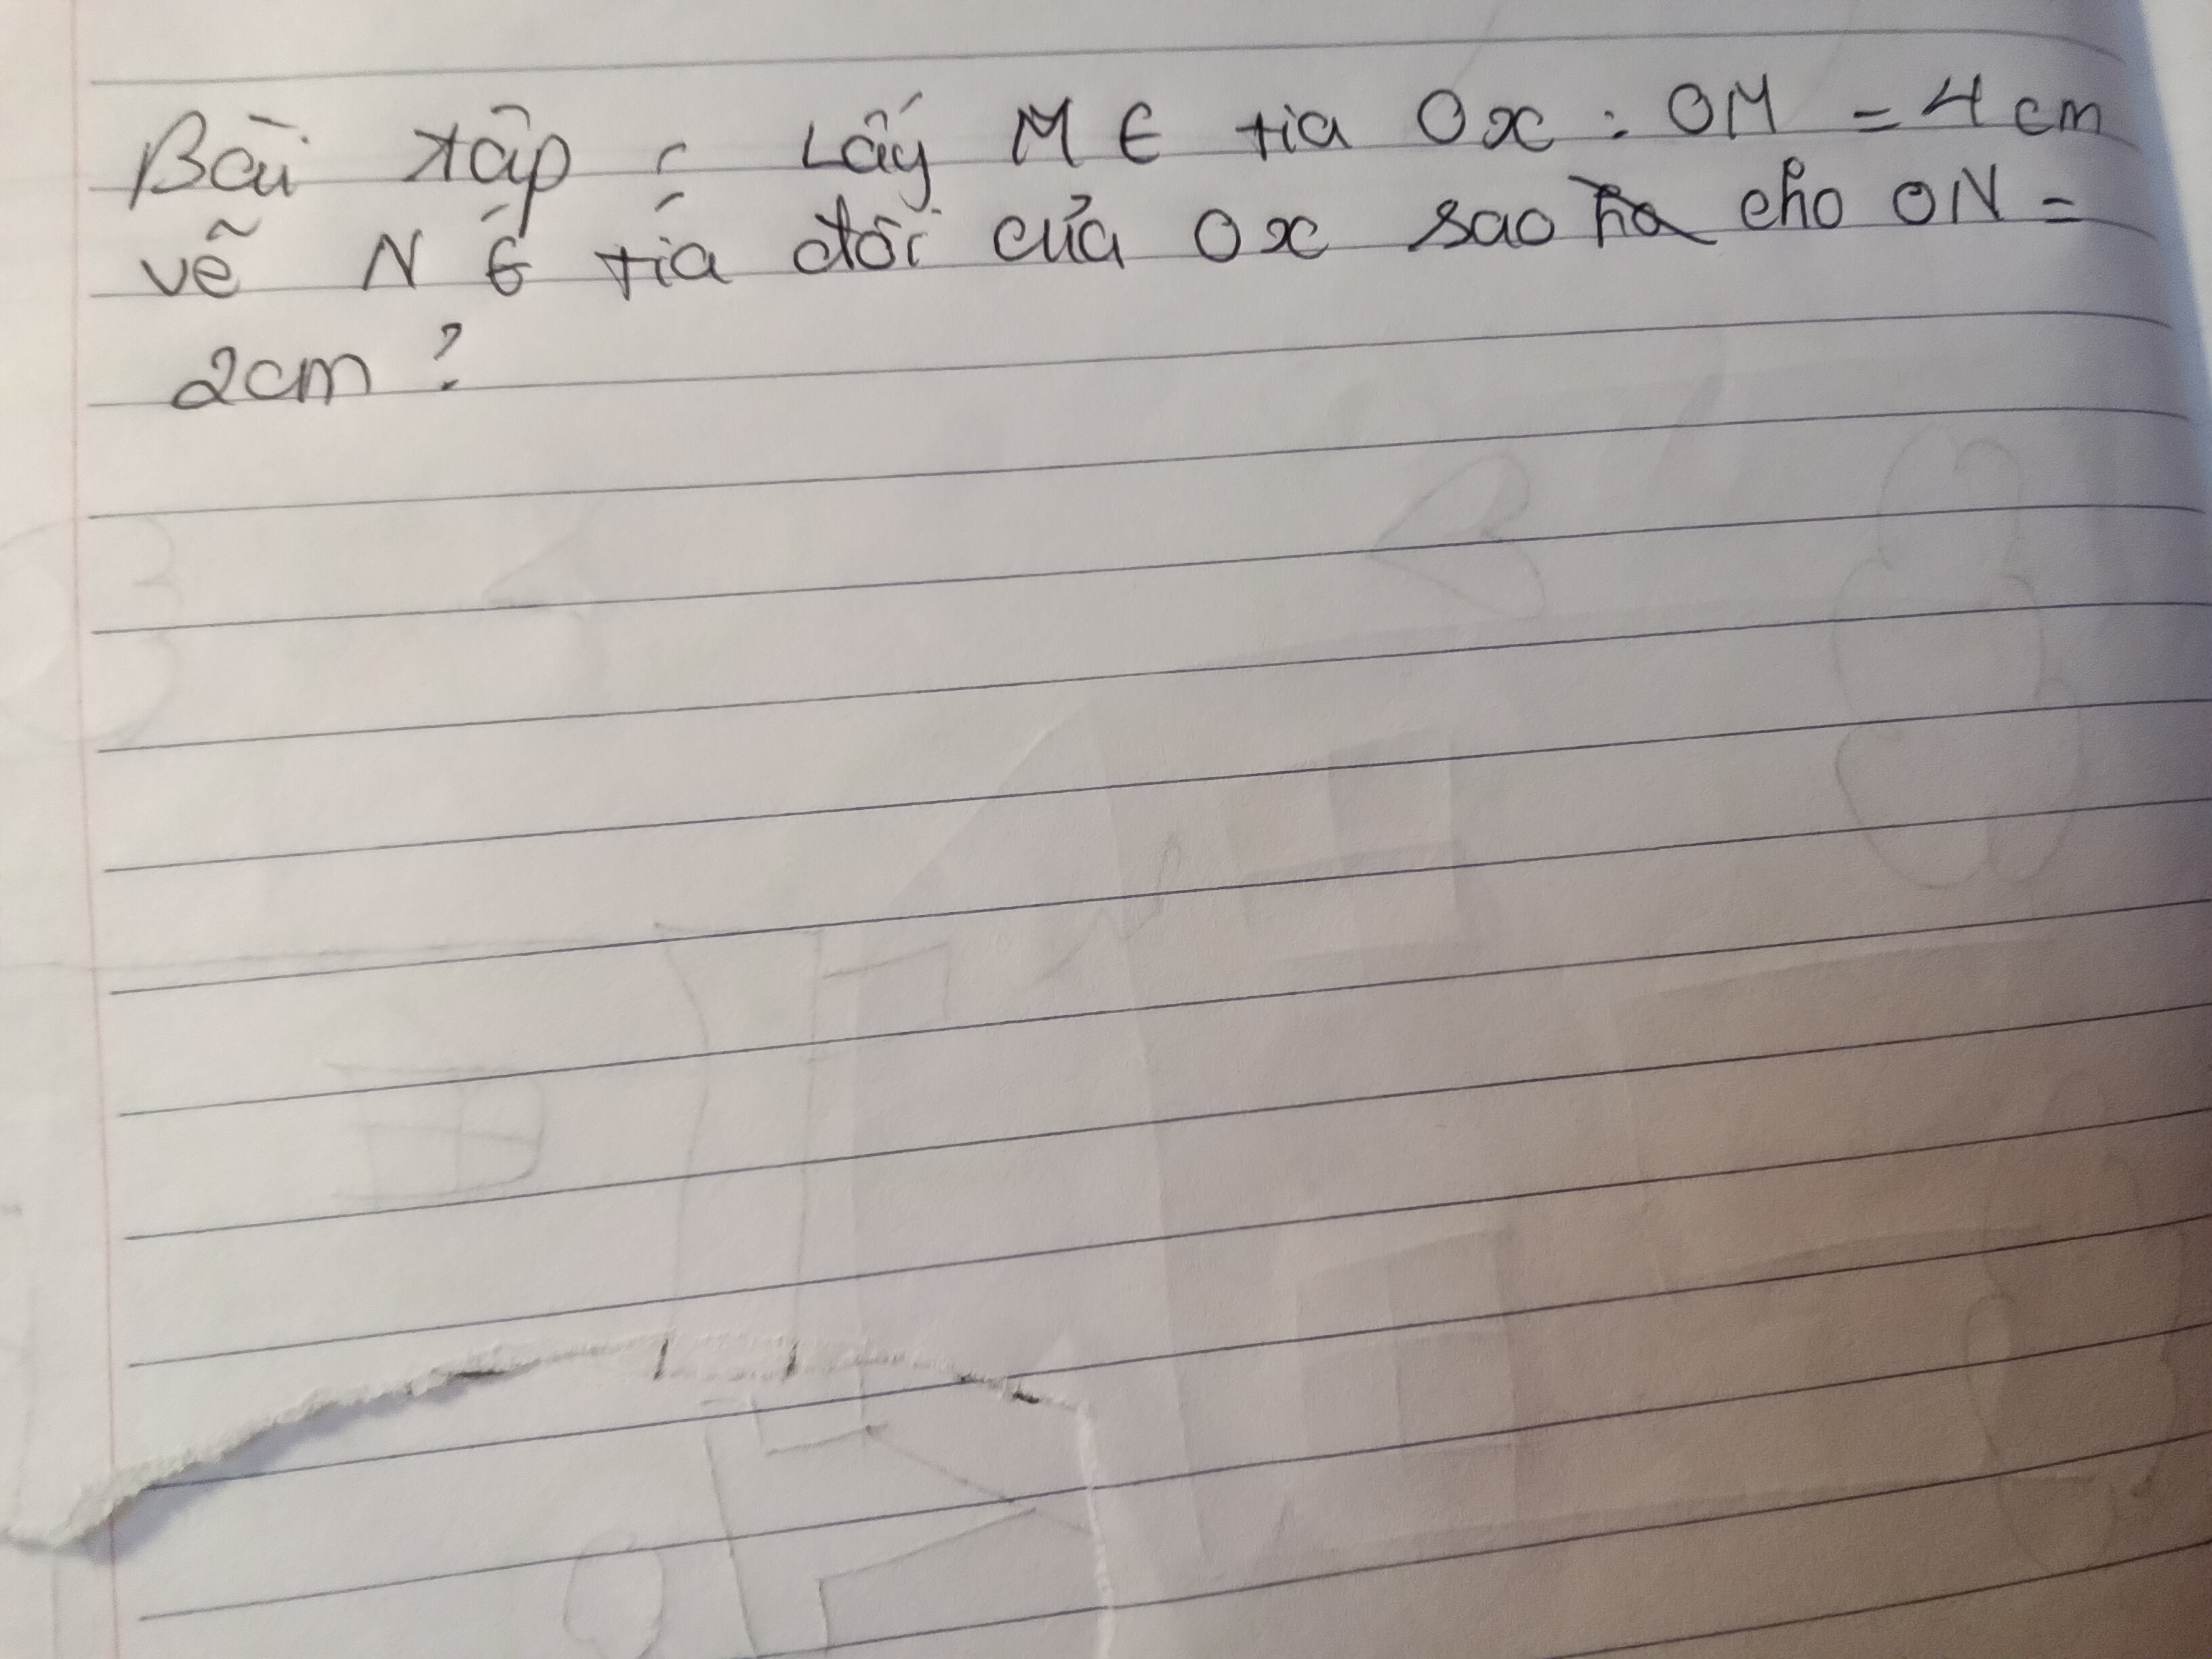 Bài tập : Lấy M ∈ tia Ox : OM = 4 cm
vẽ N ∈ tia đối của Ox sao cho ON =
2cm ?